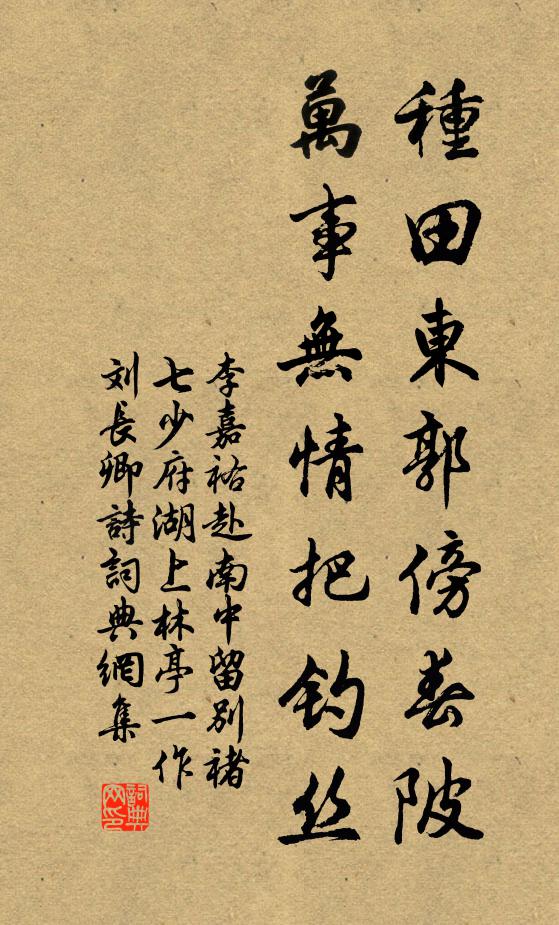 種田東郭傍春陂
萬事無情把钓丝
李嘉祐赴南中留别褚
七少府湖上林亭一作
刘長卿詩詞典網集
詞典網印